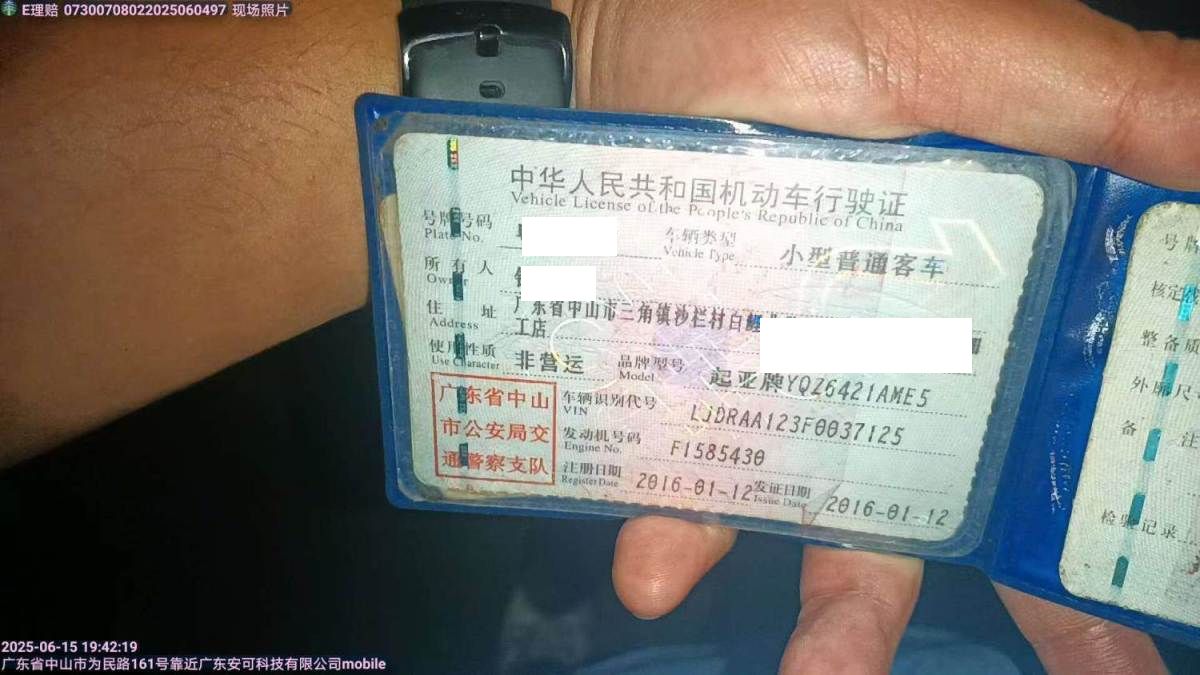 E理赔 07300708022025060497 现场照片
中华人民共和国机动车行驶证
Vehicle License of the People's Republic of China
号牌号码
Plate No.
车辆类型
Vehicle Type
小型普通客车
所有人
Owner
住址
Address
广东省中山市三角镇沙栏村白鲤
工店
使用性质
Use Character
非营运
品牌型号
Model
起亚牌YQZ6421AME5
广东省中山
市公安局交
通警察支队
车辆识别代号
VIN
LJDRAA123F0037125
发动机号码
Engine No.
F1585430
注册日期
Register Date
2016-01-12
发证日期
Issue Date
2016-01-12
号牌
核定
整备质
外廓尺
备注
检验记录
2025-06-15 19:42:19
广东省中山市为民路161号靠近广东安可科技有限公司mobile